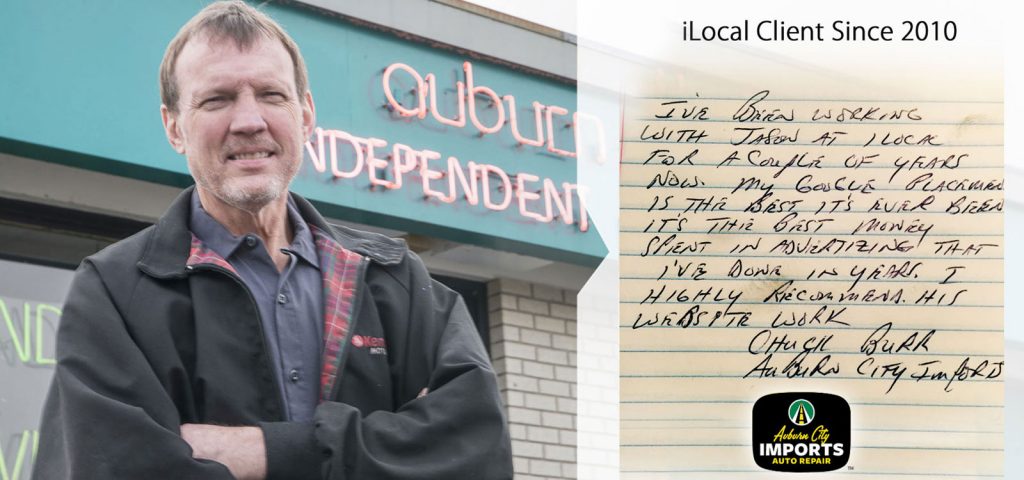 auburn
INDEPENDENT
ND
Ken
MOT
iLocal Client Since 2010
I'VE BEEN WORKING
WITH JASON AT ILOCAL
FOR A COUPLE OF YEARS
NOW. MY GOOGLE PLACEMEN
IS THE BEST IT'S EVER BEEN
IT'S THE BEST MONEY
SPENT IN ADVERTIZING THAT
I'VE DONE IN YEARS. I
HIGHLY RECOMMEND. HIS
WEBSITE WORK
CHUCK BURR
AUBURN CITY IMPORTS
Auburn City
IMPORTS
AUTO REPAIR